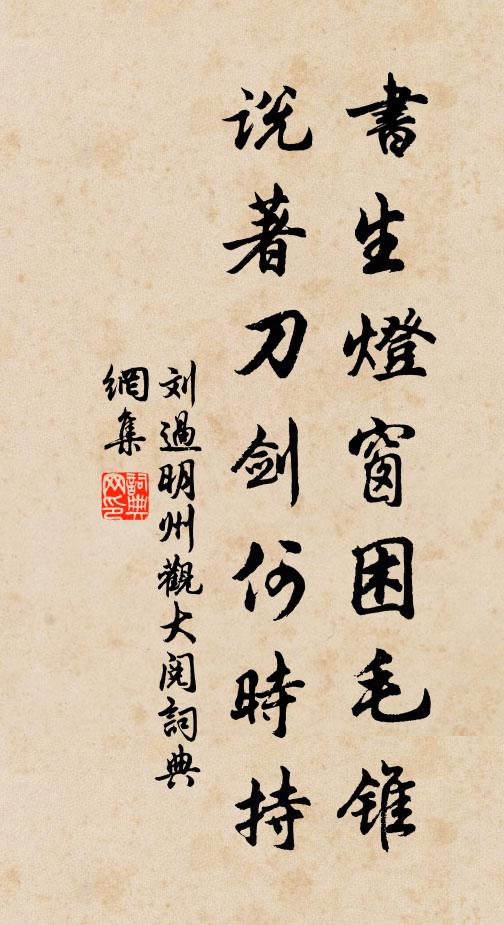 書生燈窗困毛錐
說著刀劍何時持
刘過明州觀大閱詞典
網集
詞典
网印